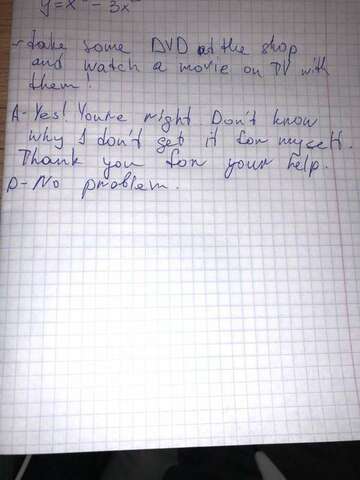 y=x - 3x
- take some DVD at the shop
and watch a movie on TV with
them!
A-Yes! You're right Don't know
why I don't get it for myself.
Thank you for your help.
D-No problem.